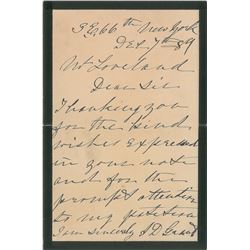 3 E 66th New York
Dec. 7th 89
Mr Loveland
Dear Sir
Thanking you
for the kind
wishes expressed
in your note
and for the
prompt attention
to my petition
I am sincerely J. D. Grant